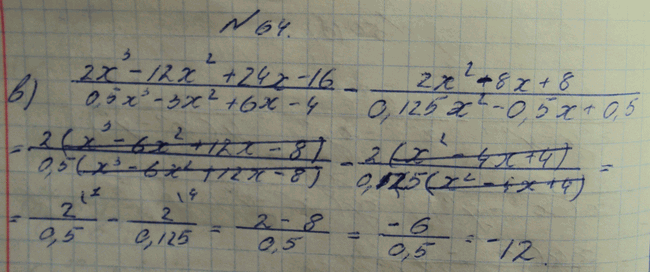 № 64.
в) (2x³ - 12x² + 24x - 16)/(0,5x³ - 3x² + 6x - 4) - (2x² - 8x + 8)/(0,125x² - 0,5x + 0,5)
= 2(x³ - 6x² + 12x - 8)/0,5(x³ - 6x² + 12x - 8) - 2(x² - 4x + 4)/0,125(x² - 4x + 4) =
= 2\¹/0,5 - 2\⁴/0,125 = (2 - 8)/0,5 = -6/0,5 = -12.